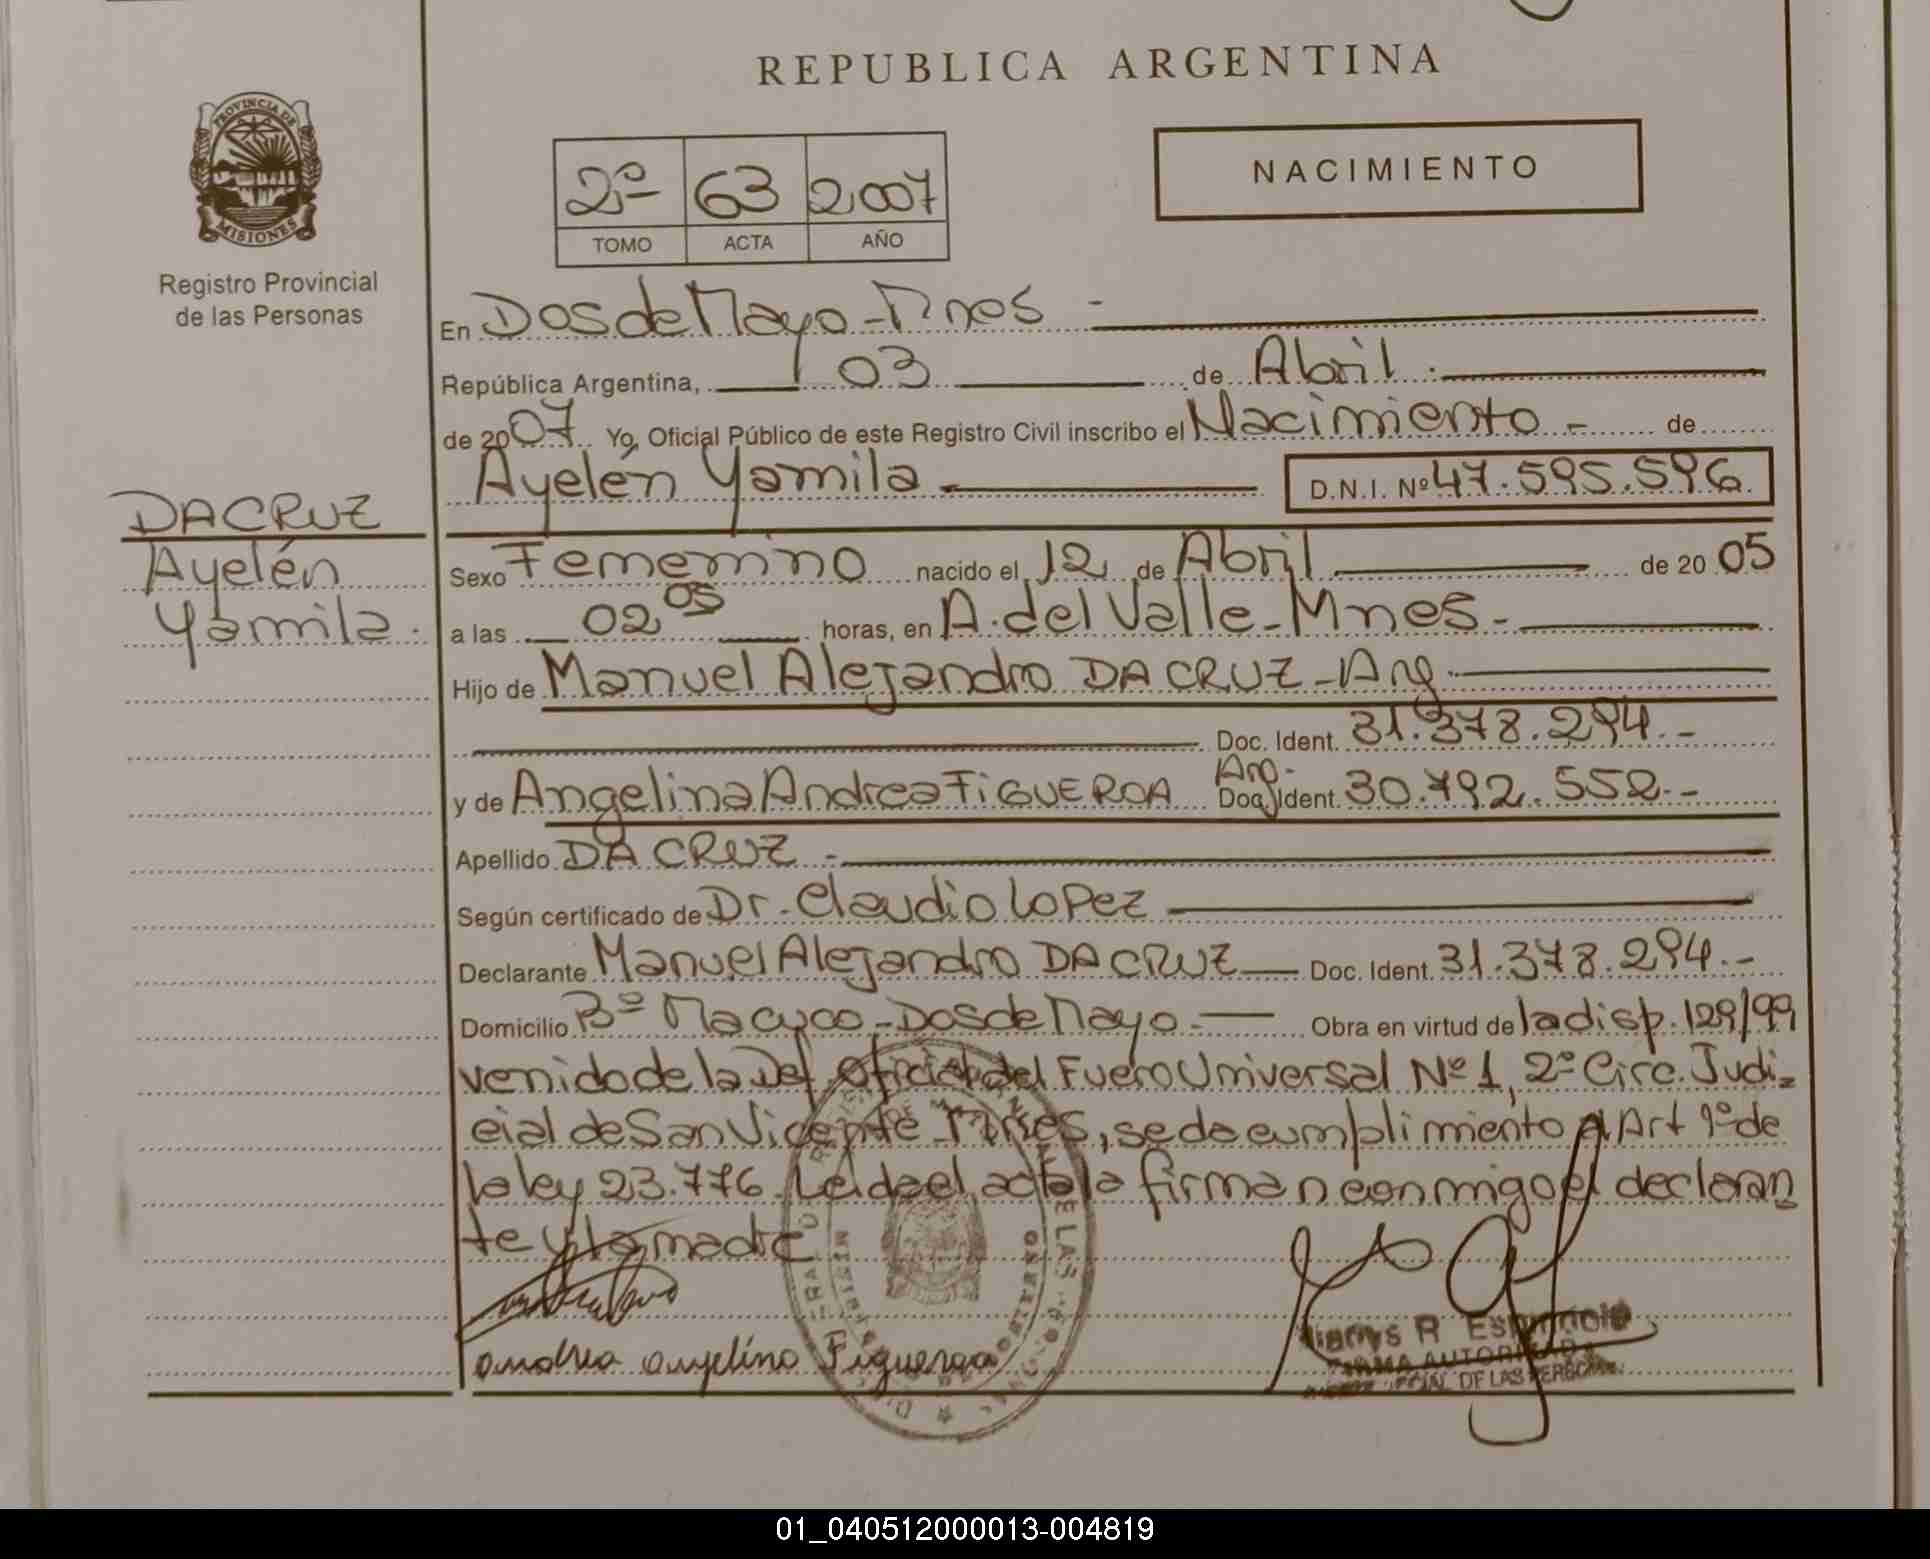 REPUBLICA ARGENTINA
PROVINCIA DE
MISIONES
Registro Provincial
de las Personas
2º 63 2.007
TOMO ACTA AÑO
NACIMIENTO
En Dos de Mayo - Mnes -
República Argentina, 03 de Abril.
de 2007 Yo, Oficial Público de este Registro Civil inscribo el Nacimiento - de
Ayelén Yamila D.N.I. Nº 47.595.596
DA CRUZ
Ayelén
Yamila.
Sexo Femenino nacido el 12 de Abril de 20 05
a las 02 05 horas, en A. del Valle - Mnes -
Hijo de Manuel Alejandro DA CRUZ - Arg.
Doc. Ident. 31.378.294.-
Arg.-
y de Angelina Andrea FIGUEROA Doc. Ident. 30.792.552.-
Apellido DA CRUZ -
Según certificado de Dr. Claudio Lopez
Declarante Manuel Alejandro DA CRUZ Doc. Ident. 31.378.294.-
Domicilio Bº Macuco - Dos de Mayo - Obra en virtud de la disp. 129/99
venido de la Def. Oficial del Fuero Universal Nº 1, 2º Circ. Judi-
cial de San Vicente Mnes, se da cumplimiento a Art 1º de
la ley 23.776. Leída el acta la firman conmigo el declaran
te y la madre
Andrea Angelina Figueroa
R Espindola
FIRMA AUTORIZADA
DE LAS PERSONAS
01_040512000013-004819